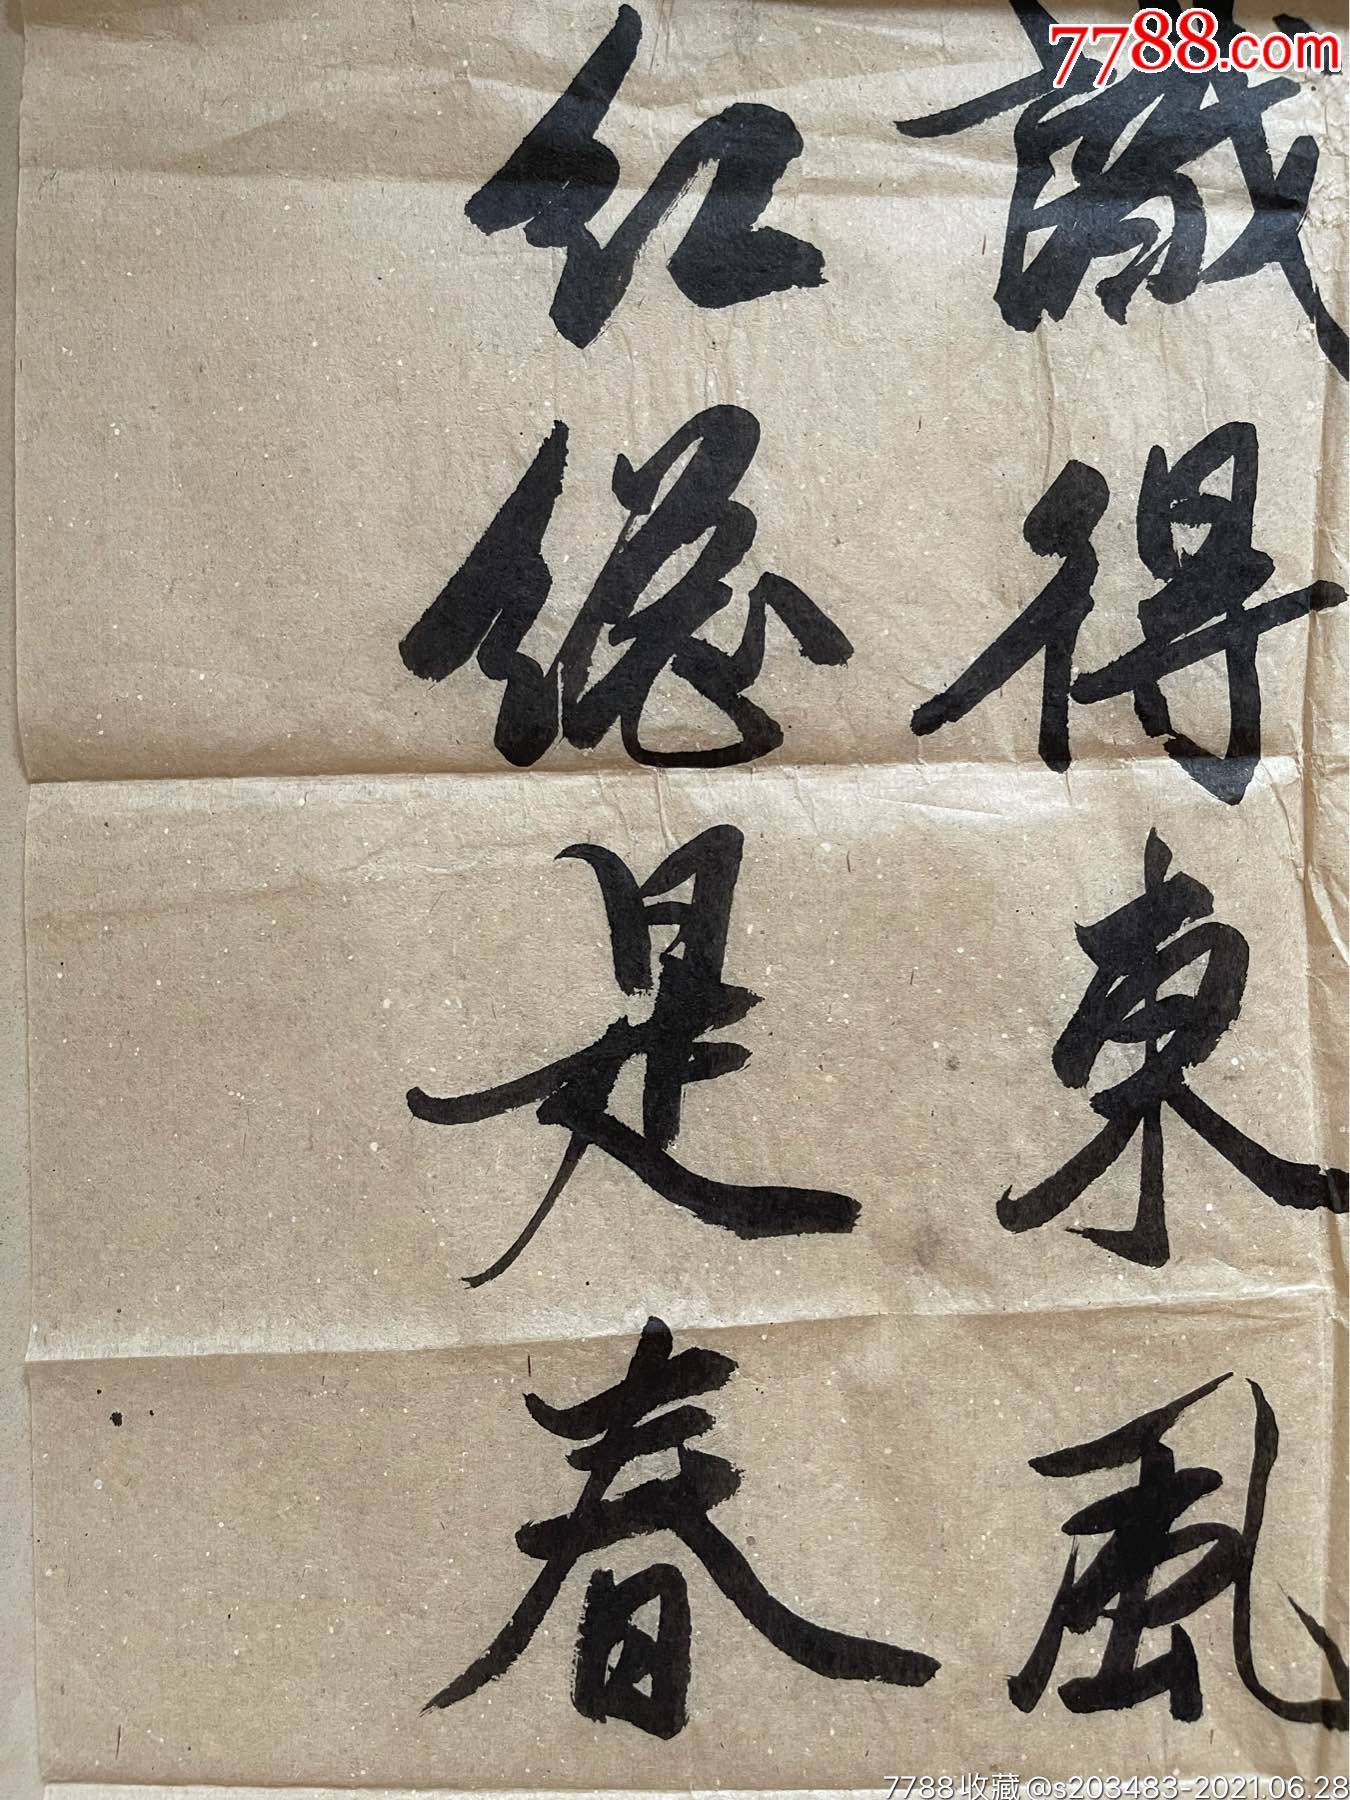 7788.com
識得東風
紅總是春
7788收藏@s203483-2021.06.28